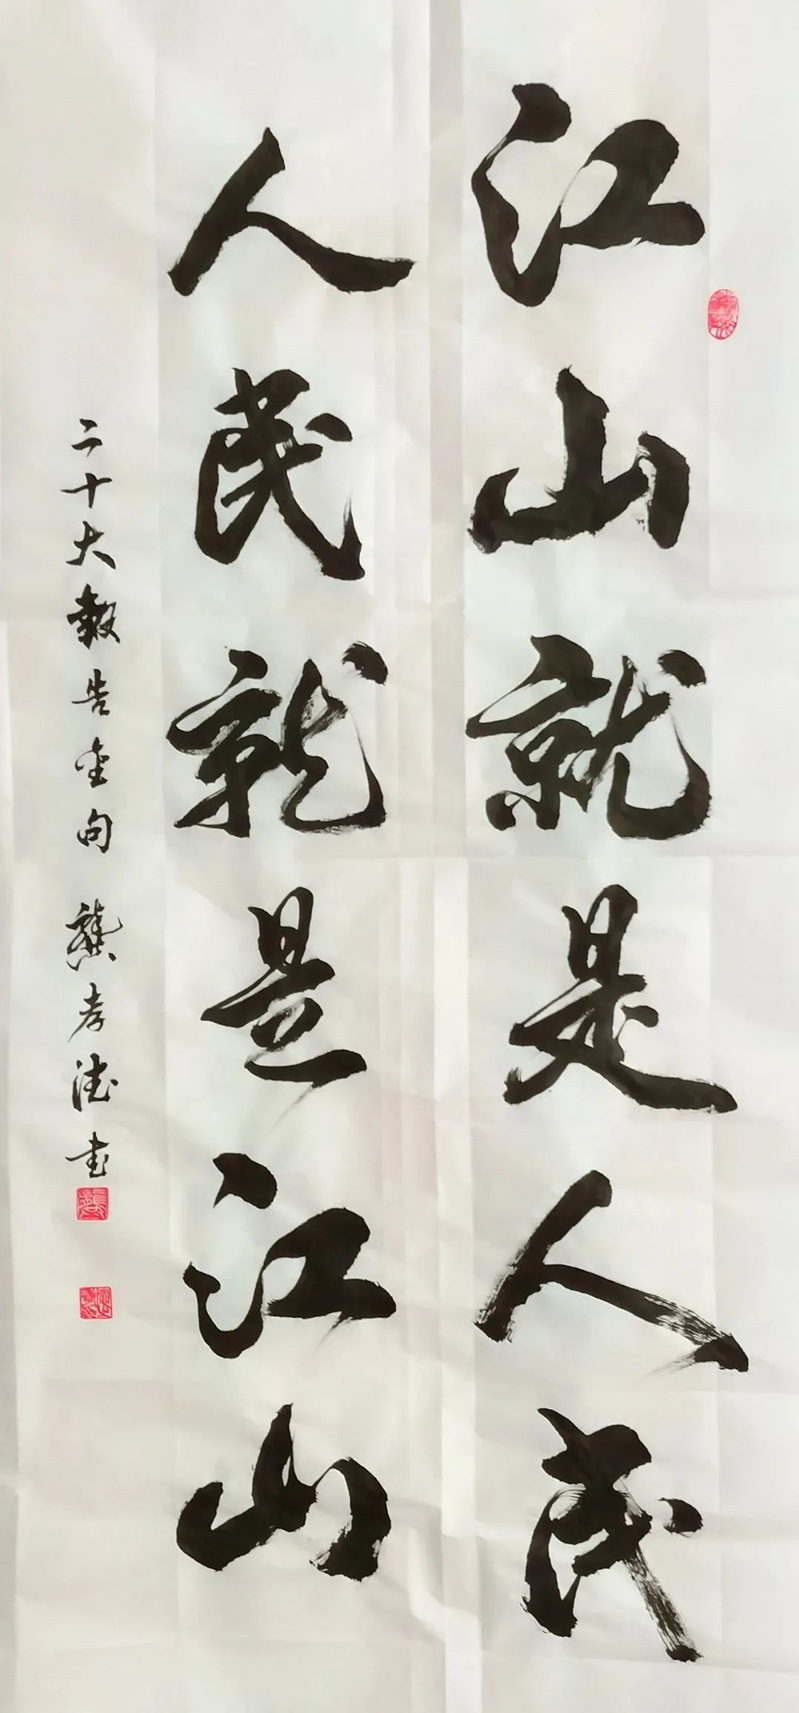 江山就是人民
人民就是江山
二十大報告金句 龔孝德书